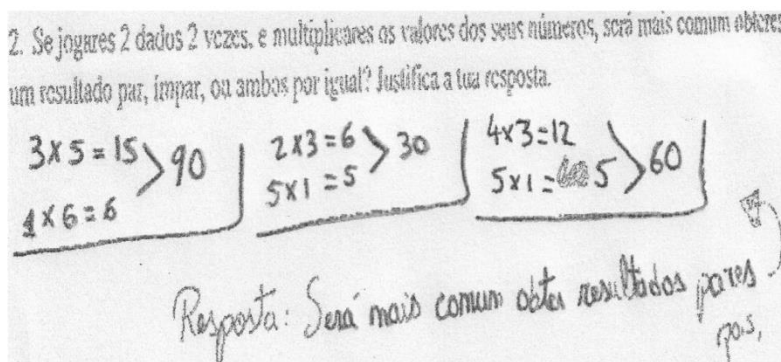 2. Se jogares 2 dados 2 vezes, e multiplicares os valores dos seus números, será mais comum obteres
um resultado par, ímpar, ou ambos por igual? Justifica a tua resposta.
3 x 5 = 15
1 x 6 = 6
> 90
2 x 3 = 6
5 x 1 = 5
> 30
4 x 3 = 12
5 x 1 = 5
> 60
Resposta: Será mais comum obter resultados pares
pois,